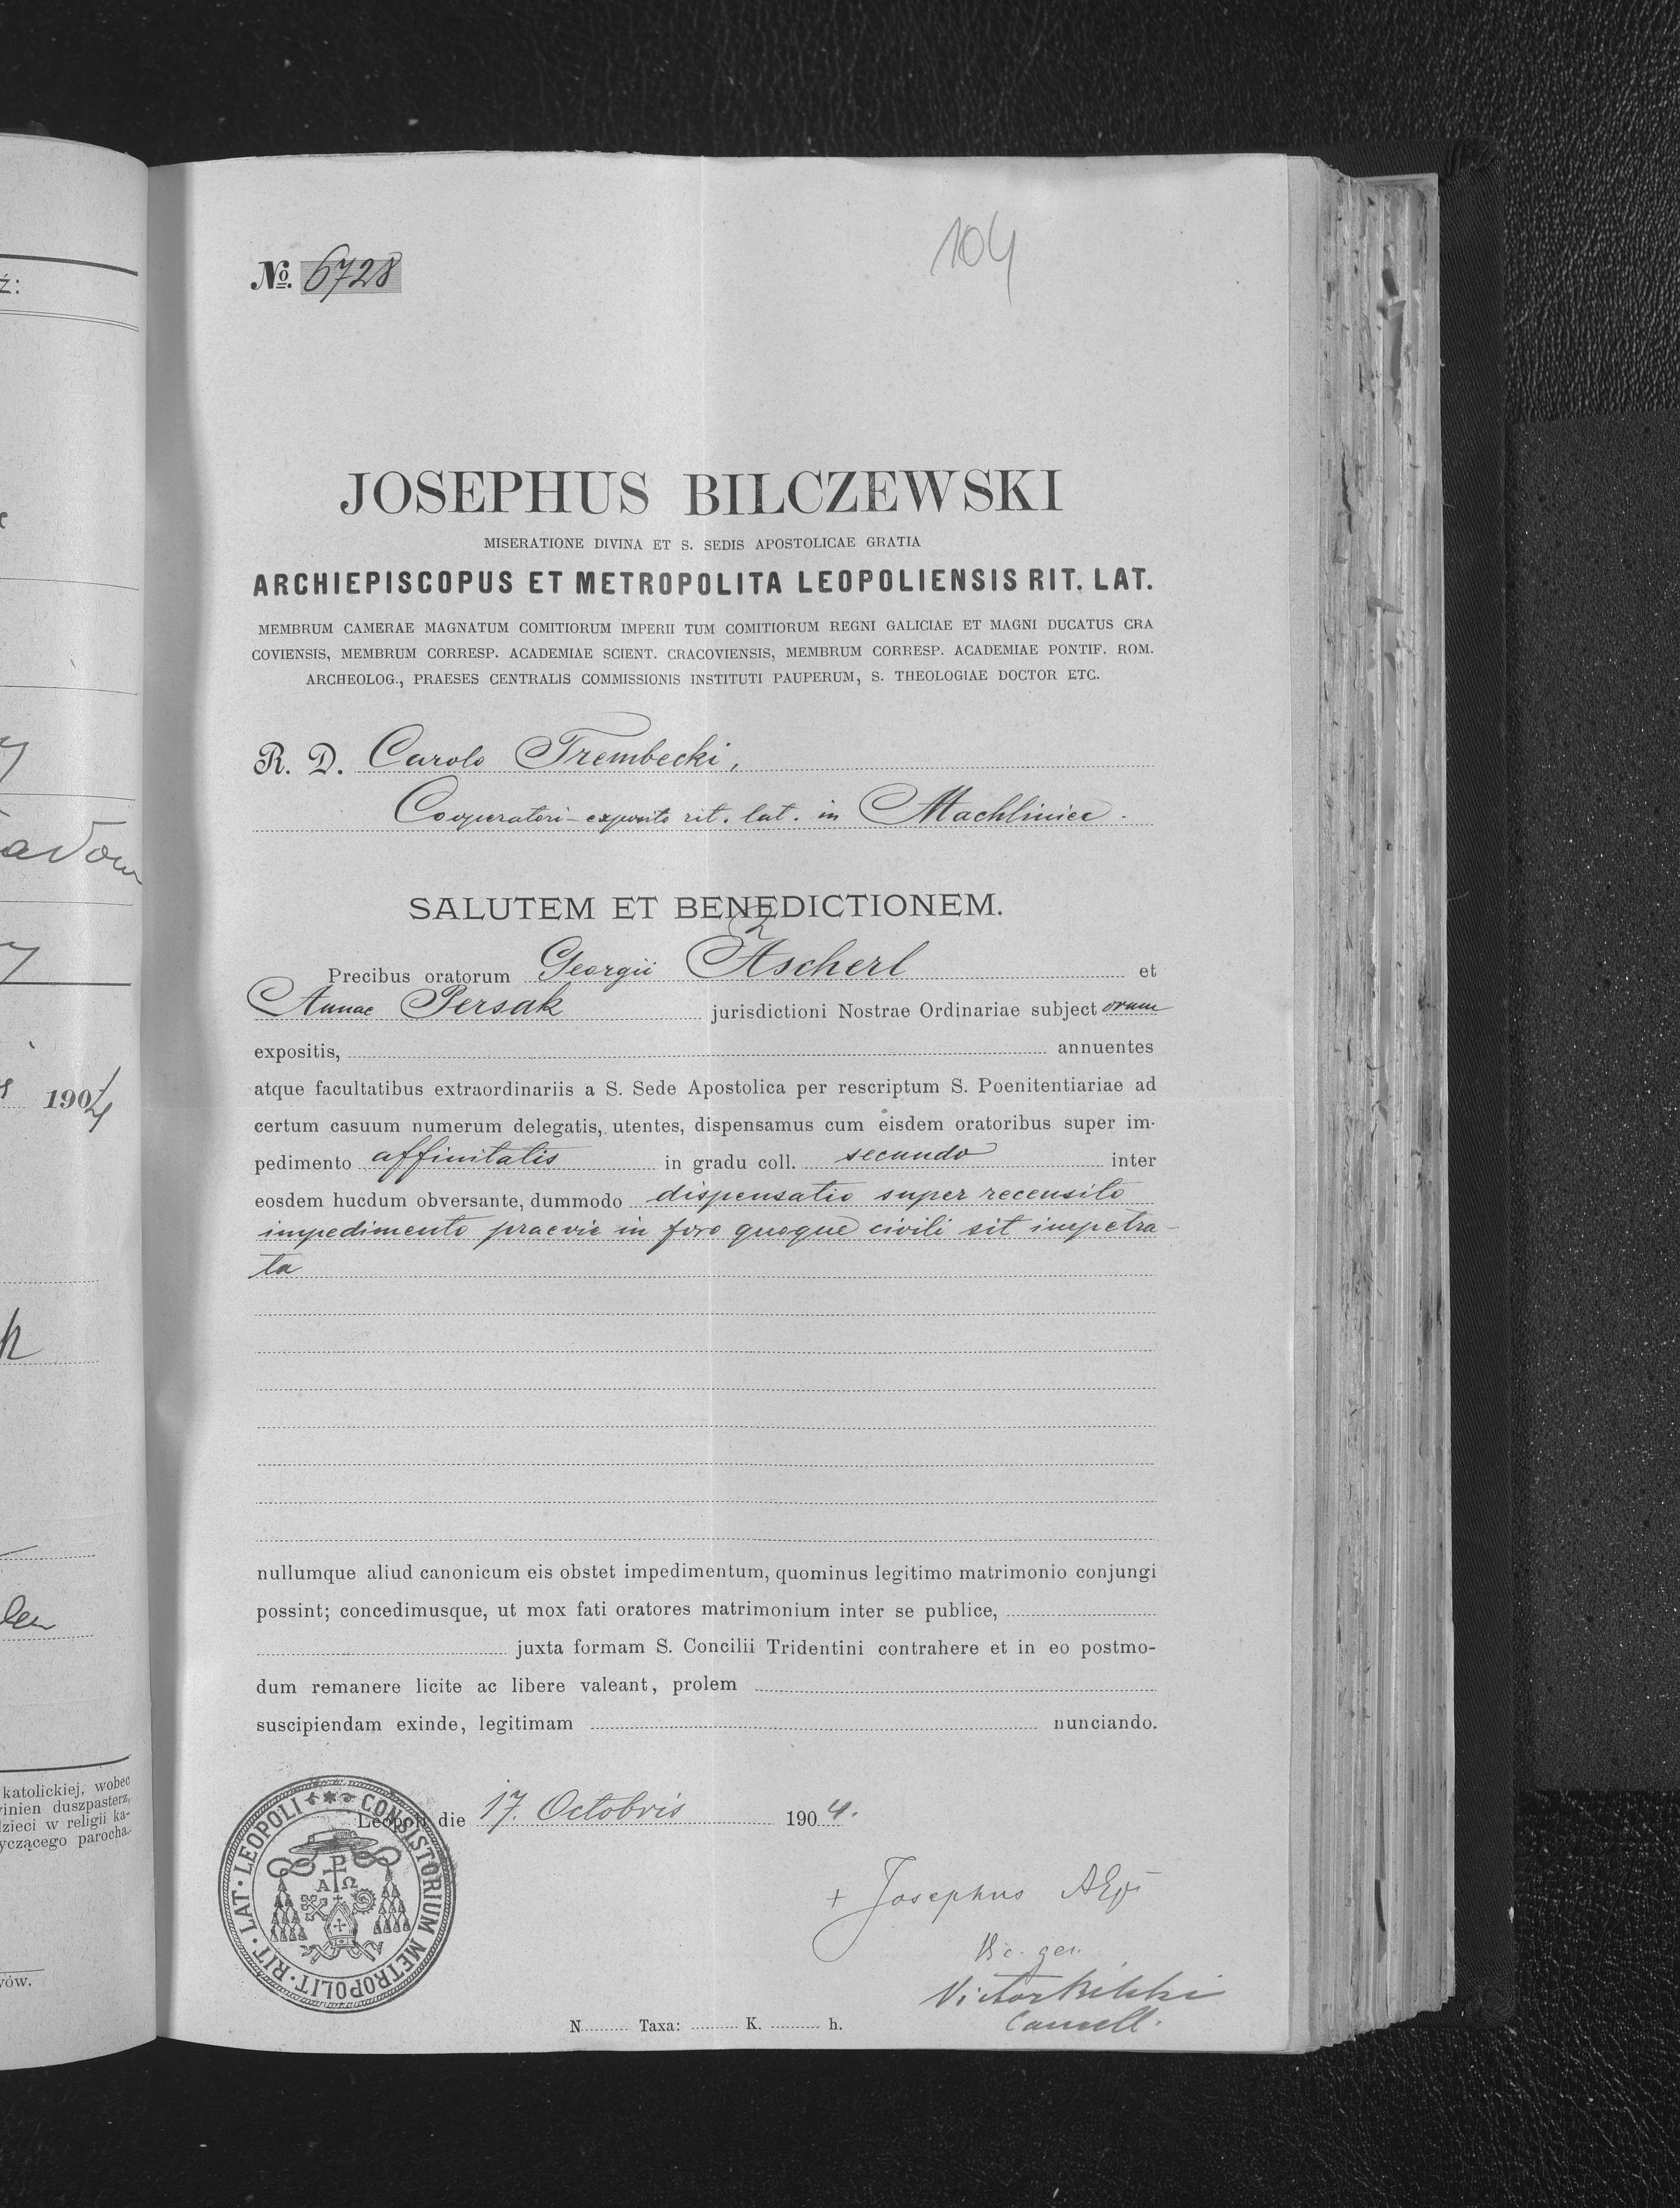 104
№. 6728
JOSEPHUS BILCZEWSKI
MISERATIONE DIVINA ET S. SEDIS APOSTOLICAE GRATIA
ARCHIEPISCOPUS ET METROPOLITA LEOPOLIENSIS RIT. LAT.
MEMBRUM CAMERAE MAGNATUM COMITIORUM IMPERII TUM COMITIORUM REGNI GALICIAE ET MAGNI DUCATUS CRA
COVIENSIS, MEMBRUM CORRESP. ACADEMIAE SCIENT. CRACOVIENSIS, MEMBRUM CORRESP. ACADEMIAE PONTIF. ROM.
ARCHEOLOG., PRAESES CENTRALIS COMMISSIONIS INSTITUTI PAUPERUM, S. THEOLOGIAE DOCTOR ETC.
R. D. Carolo Trembecki,
Cooperatori-exposito rit. lat. in Machliniec.
SALUTEM ET BENEDICTIONEM.
Precibus oratorum Georgii Ascherl et
Annae Persak jurisdictioni Nostrae Ordinariae subjectorum
expositis, annuentes
atque facultatibus extraordinariis a S. Sede Apostolica per rescriptum S. Poenitentiariae ad
certum casuum numerum delegatis, utentes, dispensamus cum eisdem oratoribus super im-
pedimento affinitatis in gradu coll. secundo inter
eosdem hucdum obversante, dummodo dispensatio super recensito
impedimento praevie in foro quoque civili sit impetra-
ta
nullumque aliud canonicum eis obstet impedimentum, quominus legitimo matrimonio conjungi
possint; concedimusque, ut mox fati oratores matrimonium inter se publice,
juxta formam S. Concilii Tridentini contrahere et in eo postmo-
dum remanere licite ac libere valeant, prolem
suscipiendam exinde, legitimam nunciando.
Leopoli die 17. Octobris 1904.
CONSISTORIUM METROPOLIT. RIT. LAT. LEOPOLI
A Ω
+ Josephus AEp
Vic. gen.
Victor
Cancell.
N Taxa: K. h.
ź:
1904
katolickiej, wobec
winien duszpasterz,
dzieci w religii ka-
yczącego parocha.
vów.